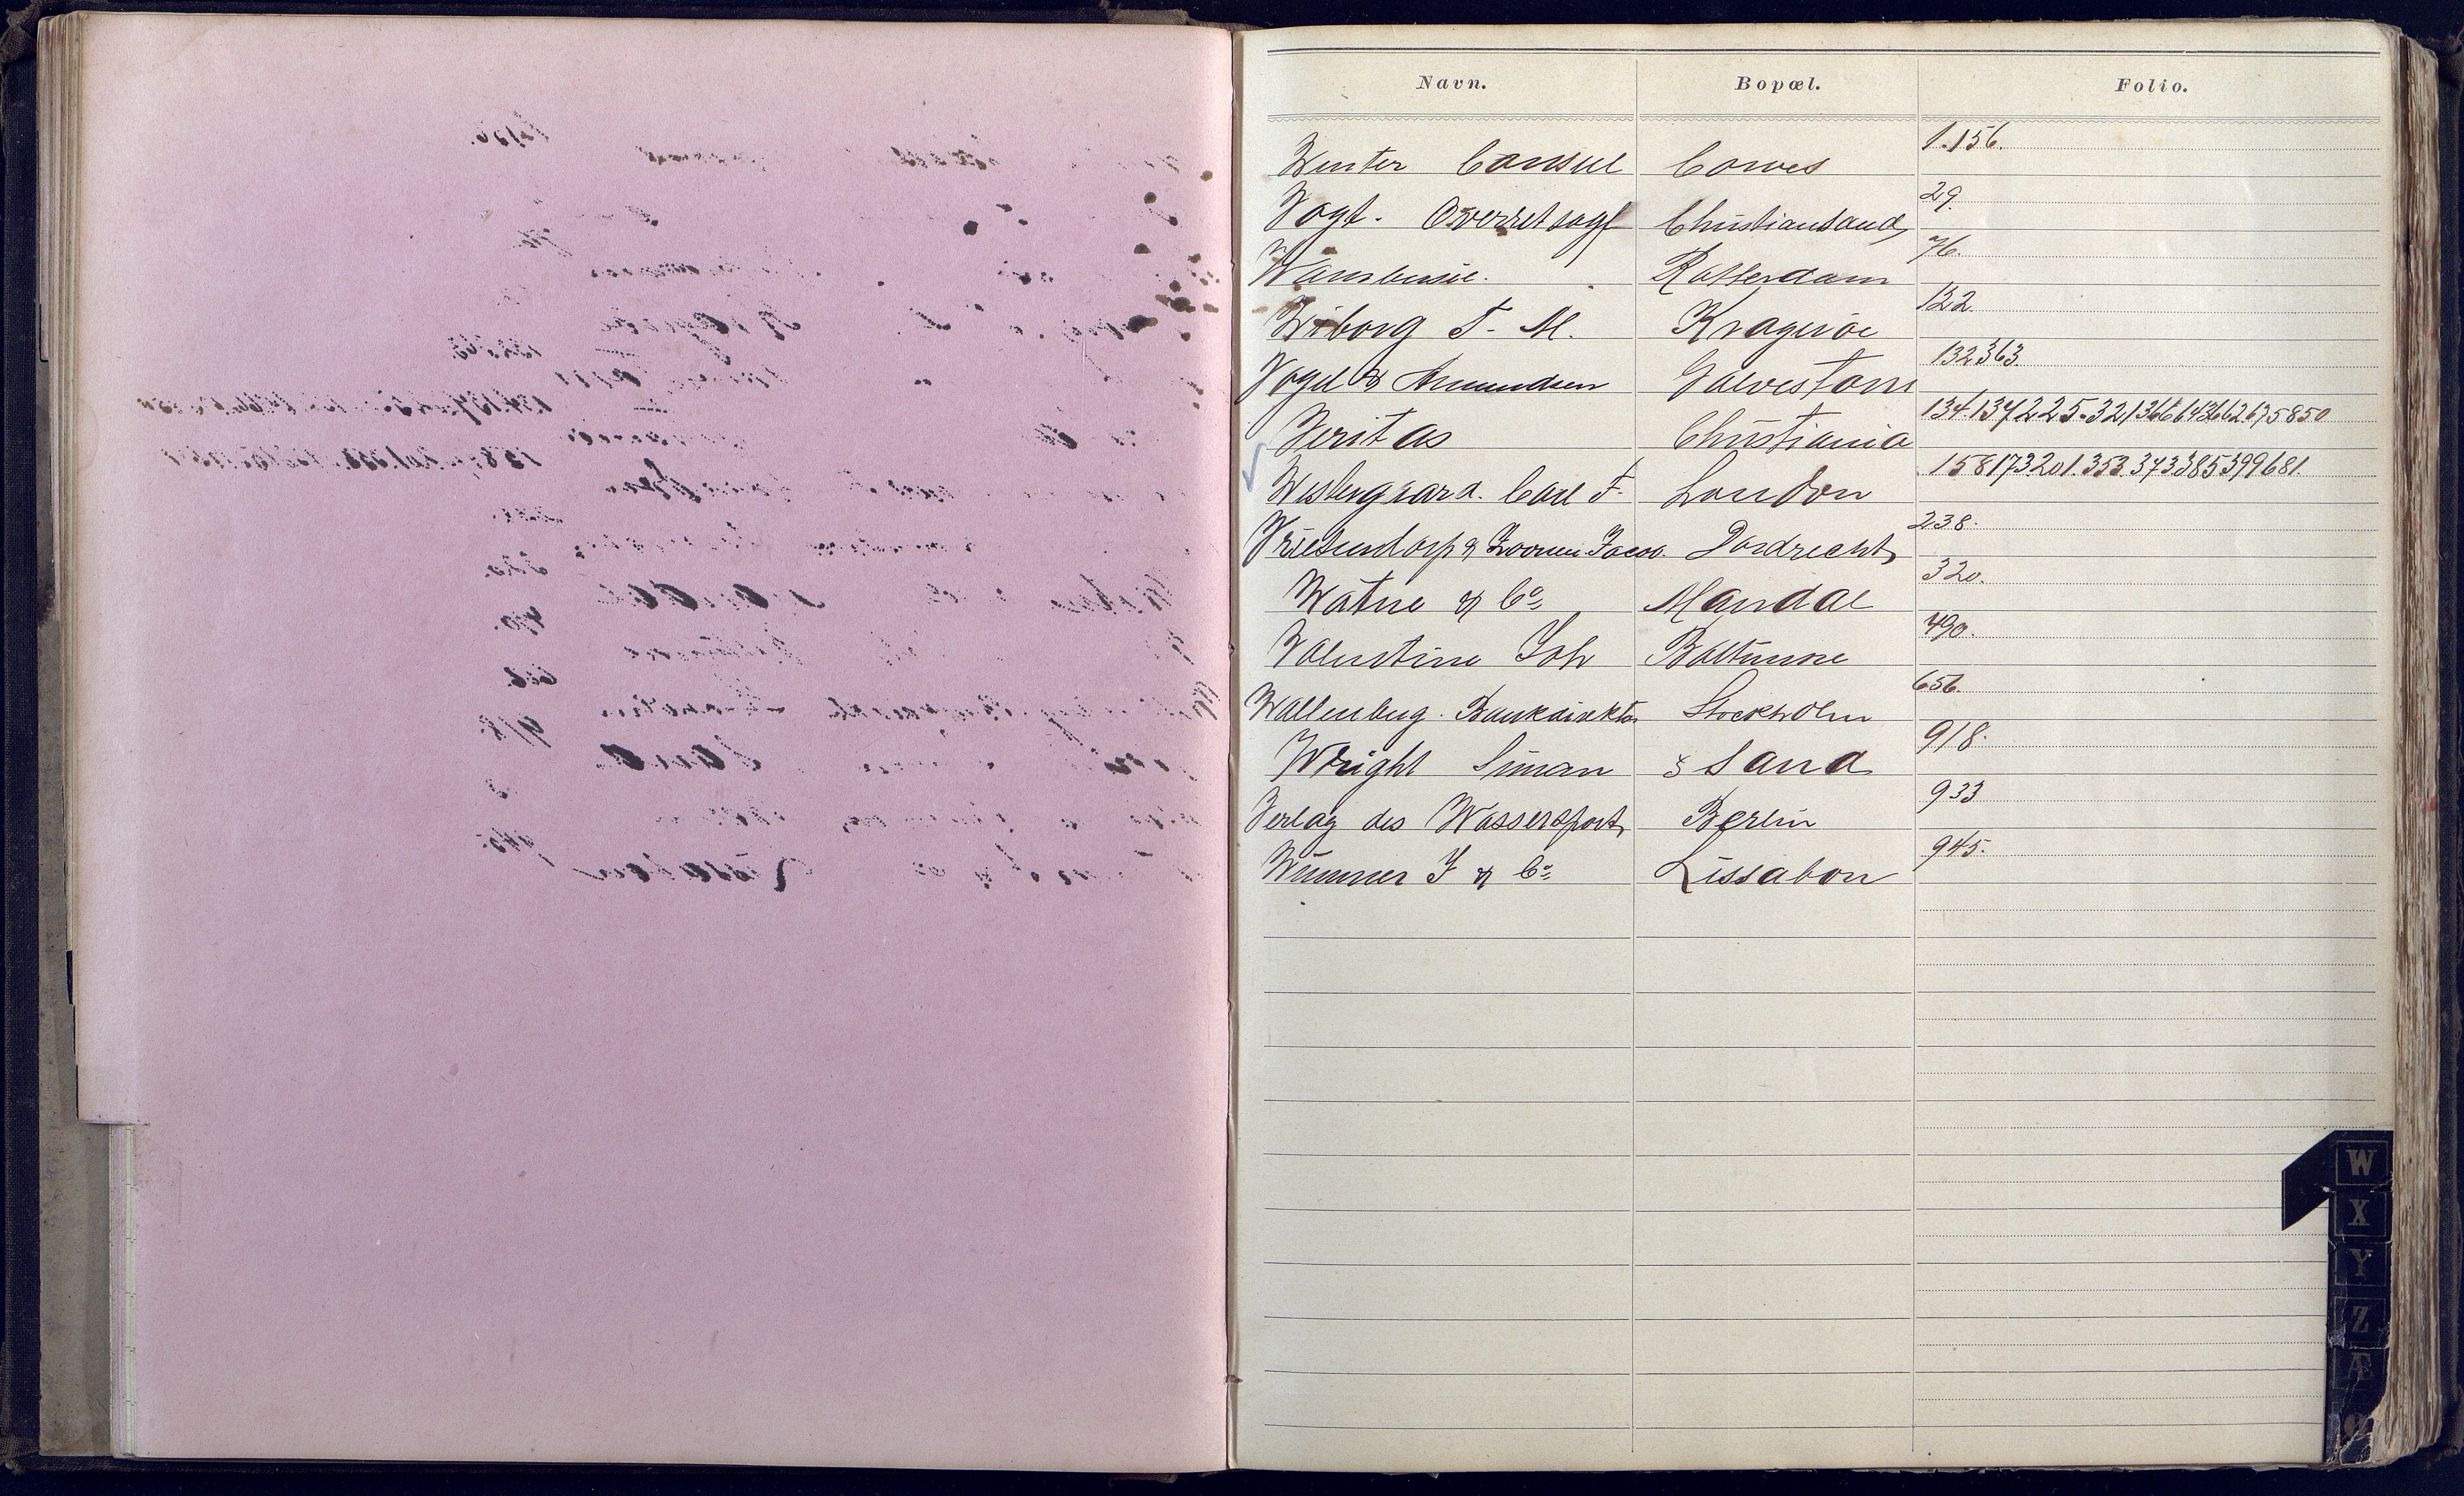 Navn. Bopæl. Folio.
Winter Consul Cowes 1.156.
Vogt. Overretsagf Christiansand, 29.
Rotterdam 76.
Wiborg T. M. Kragerøe 122.
Vogel & Amundsen Galveston 132 363.
Veritas Christiania 134.137 225.321 366
Westergaard. Carl T. London 158 173 201.353.373 385 399 681.
Vriesendorp & Dordrecht, 238.
Watne & Co Mandal 320.
Valentine Joh Baltimore 490.
Wallenberg. Bankdirektør Stockholm 656.
Wright Siman Xsand 918.
Verlag des Wassersport, Berlin 933
Wimmer J & Co Lissabon 945.
W
X
Y
Z
Æ
Ø